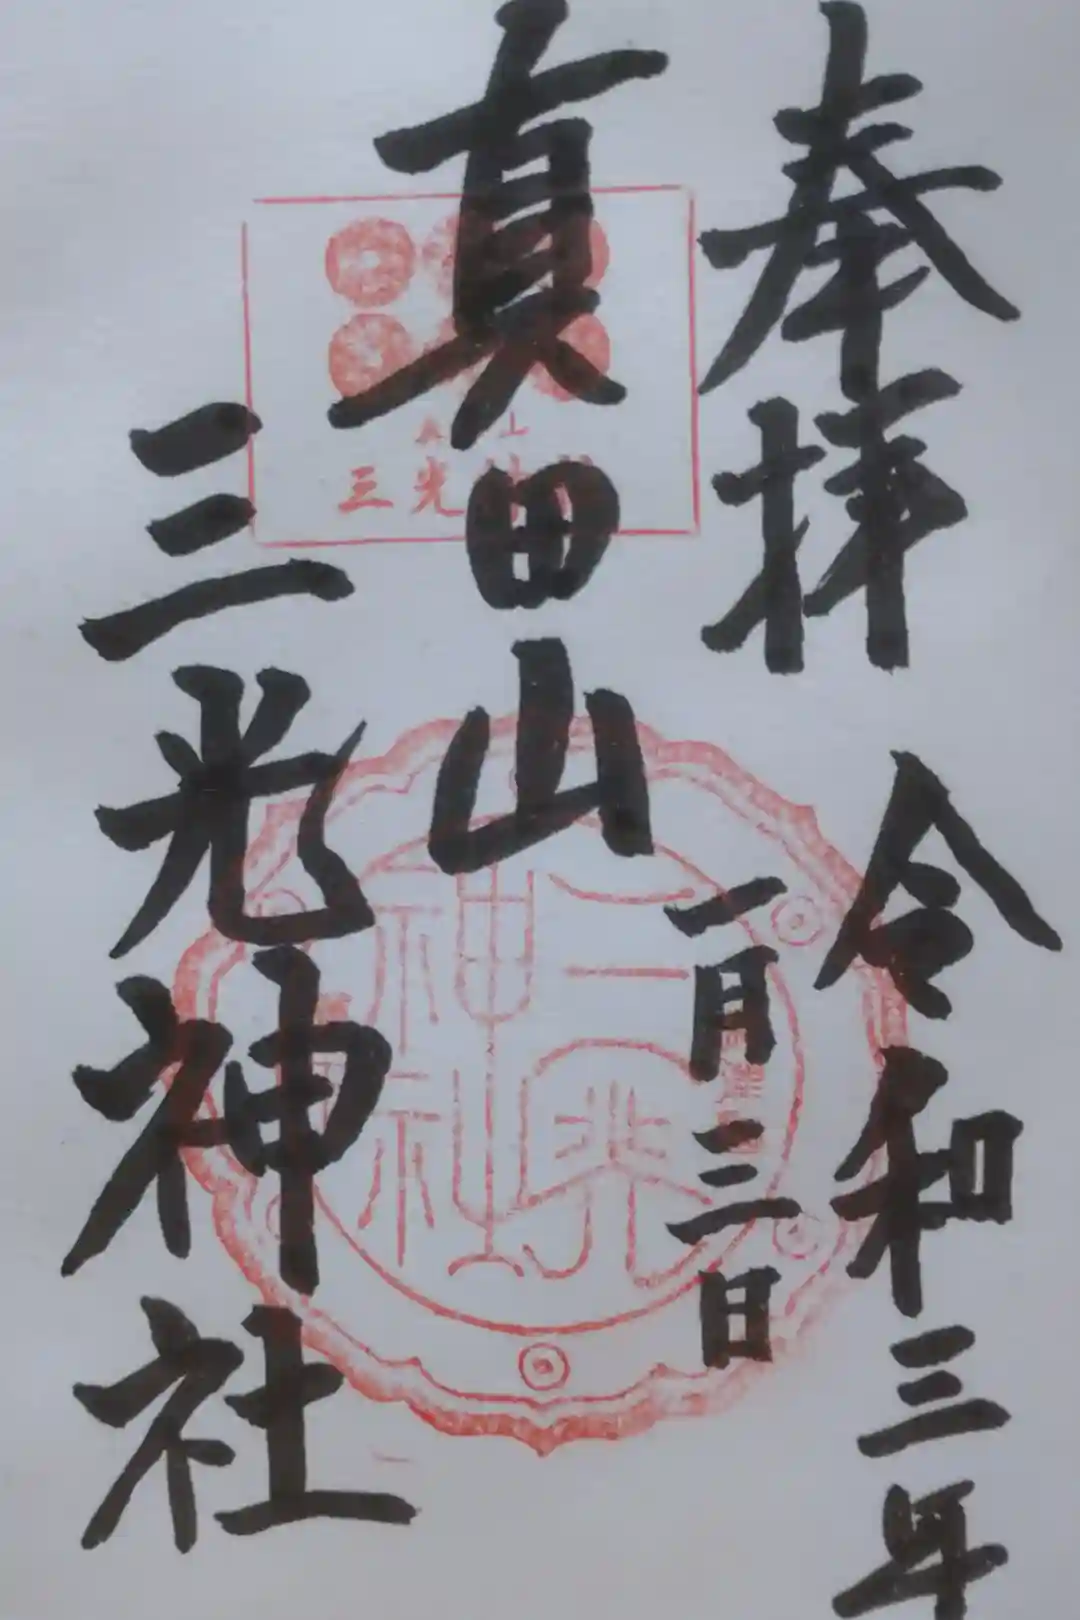 奉拝 令和三年
一月三日
真田山
三光神社
真田山
三光神社
三光神社